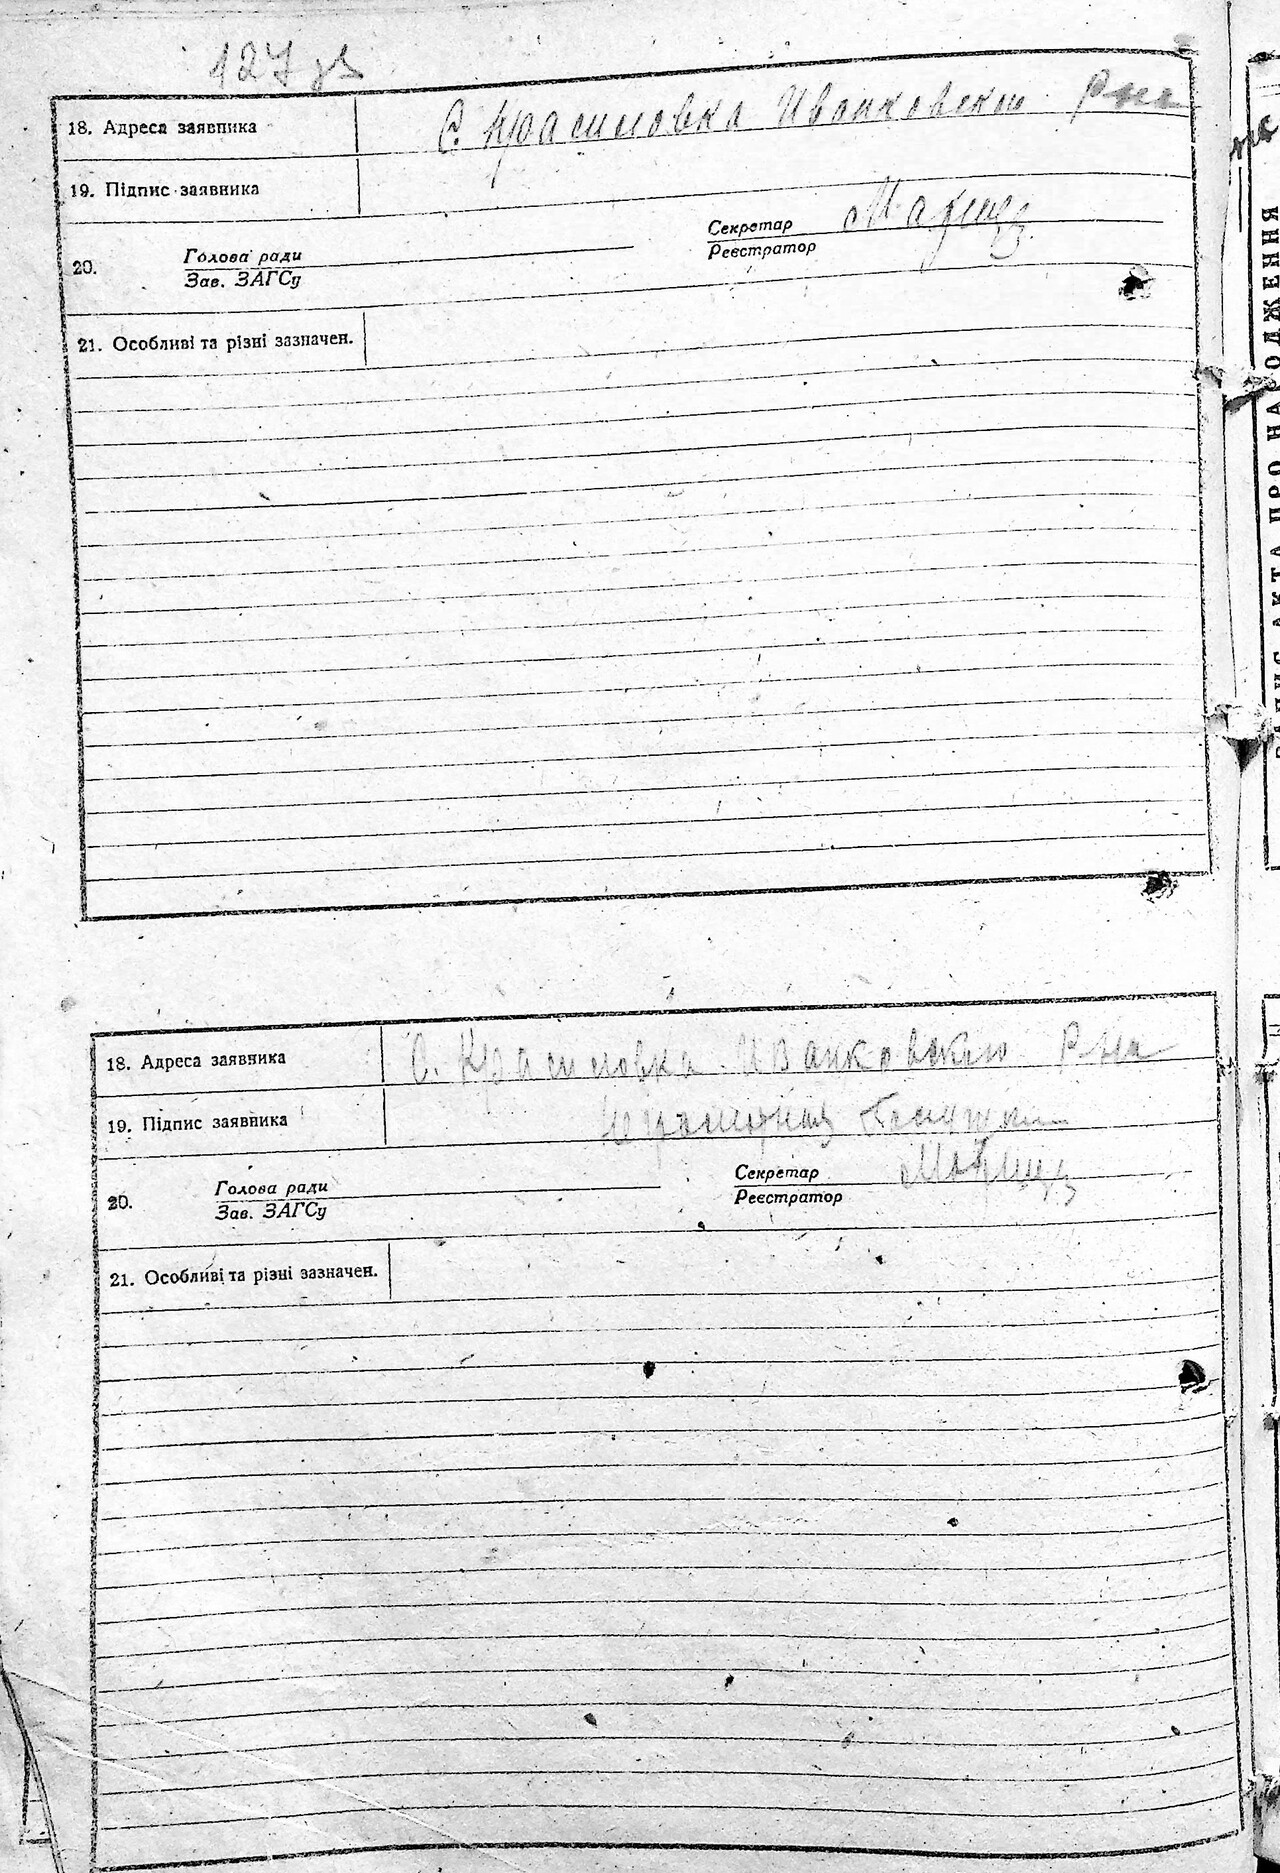 127 зв
18. Адреса заявника С. Красиловка Иванковского Р на
19. Підпис заявника
20. Голова ради Секретар
Зав. ЗАГСу Реєстратор
21. Особливі та різні зазначен.
18. Адреса заявника С. Красиловка Иванковского Р на
19. Підпис заявника неграмотная
20. Голова ради Секретар
Зав. ЗАГСу Реєстратор
21. Особливі та різні зазначен.
АКТА ПРО НАРОДЖЕННЯ